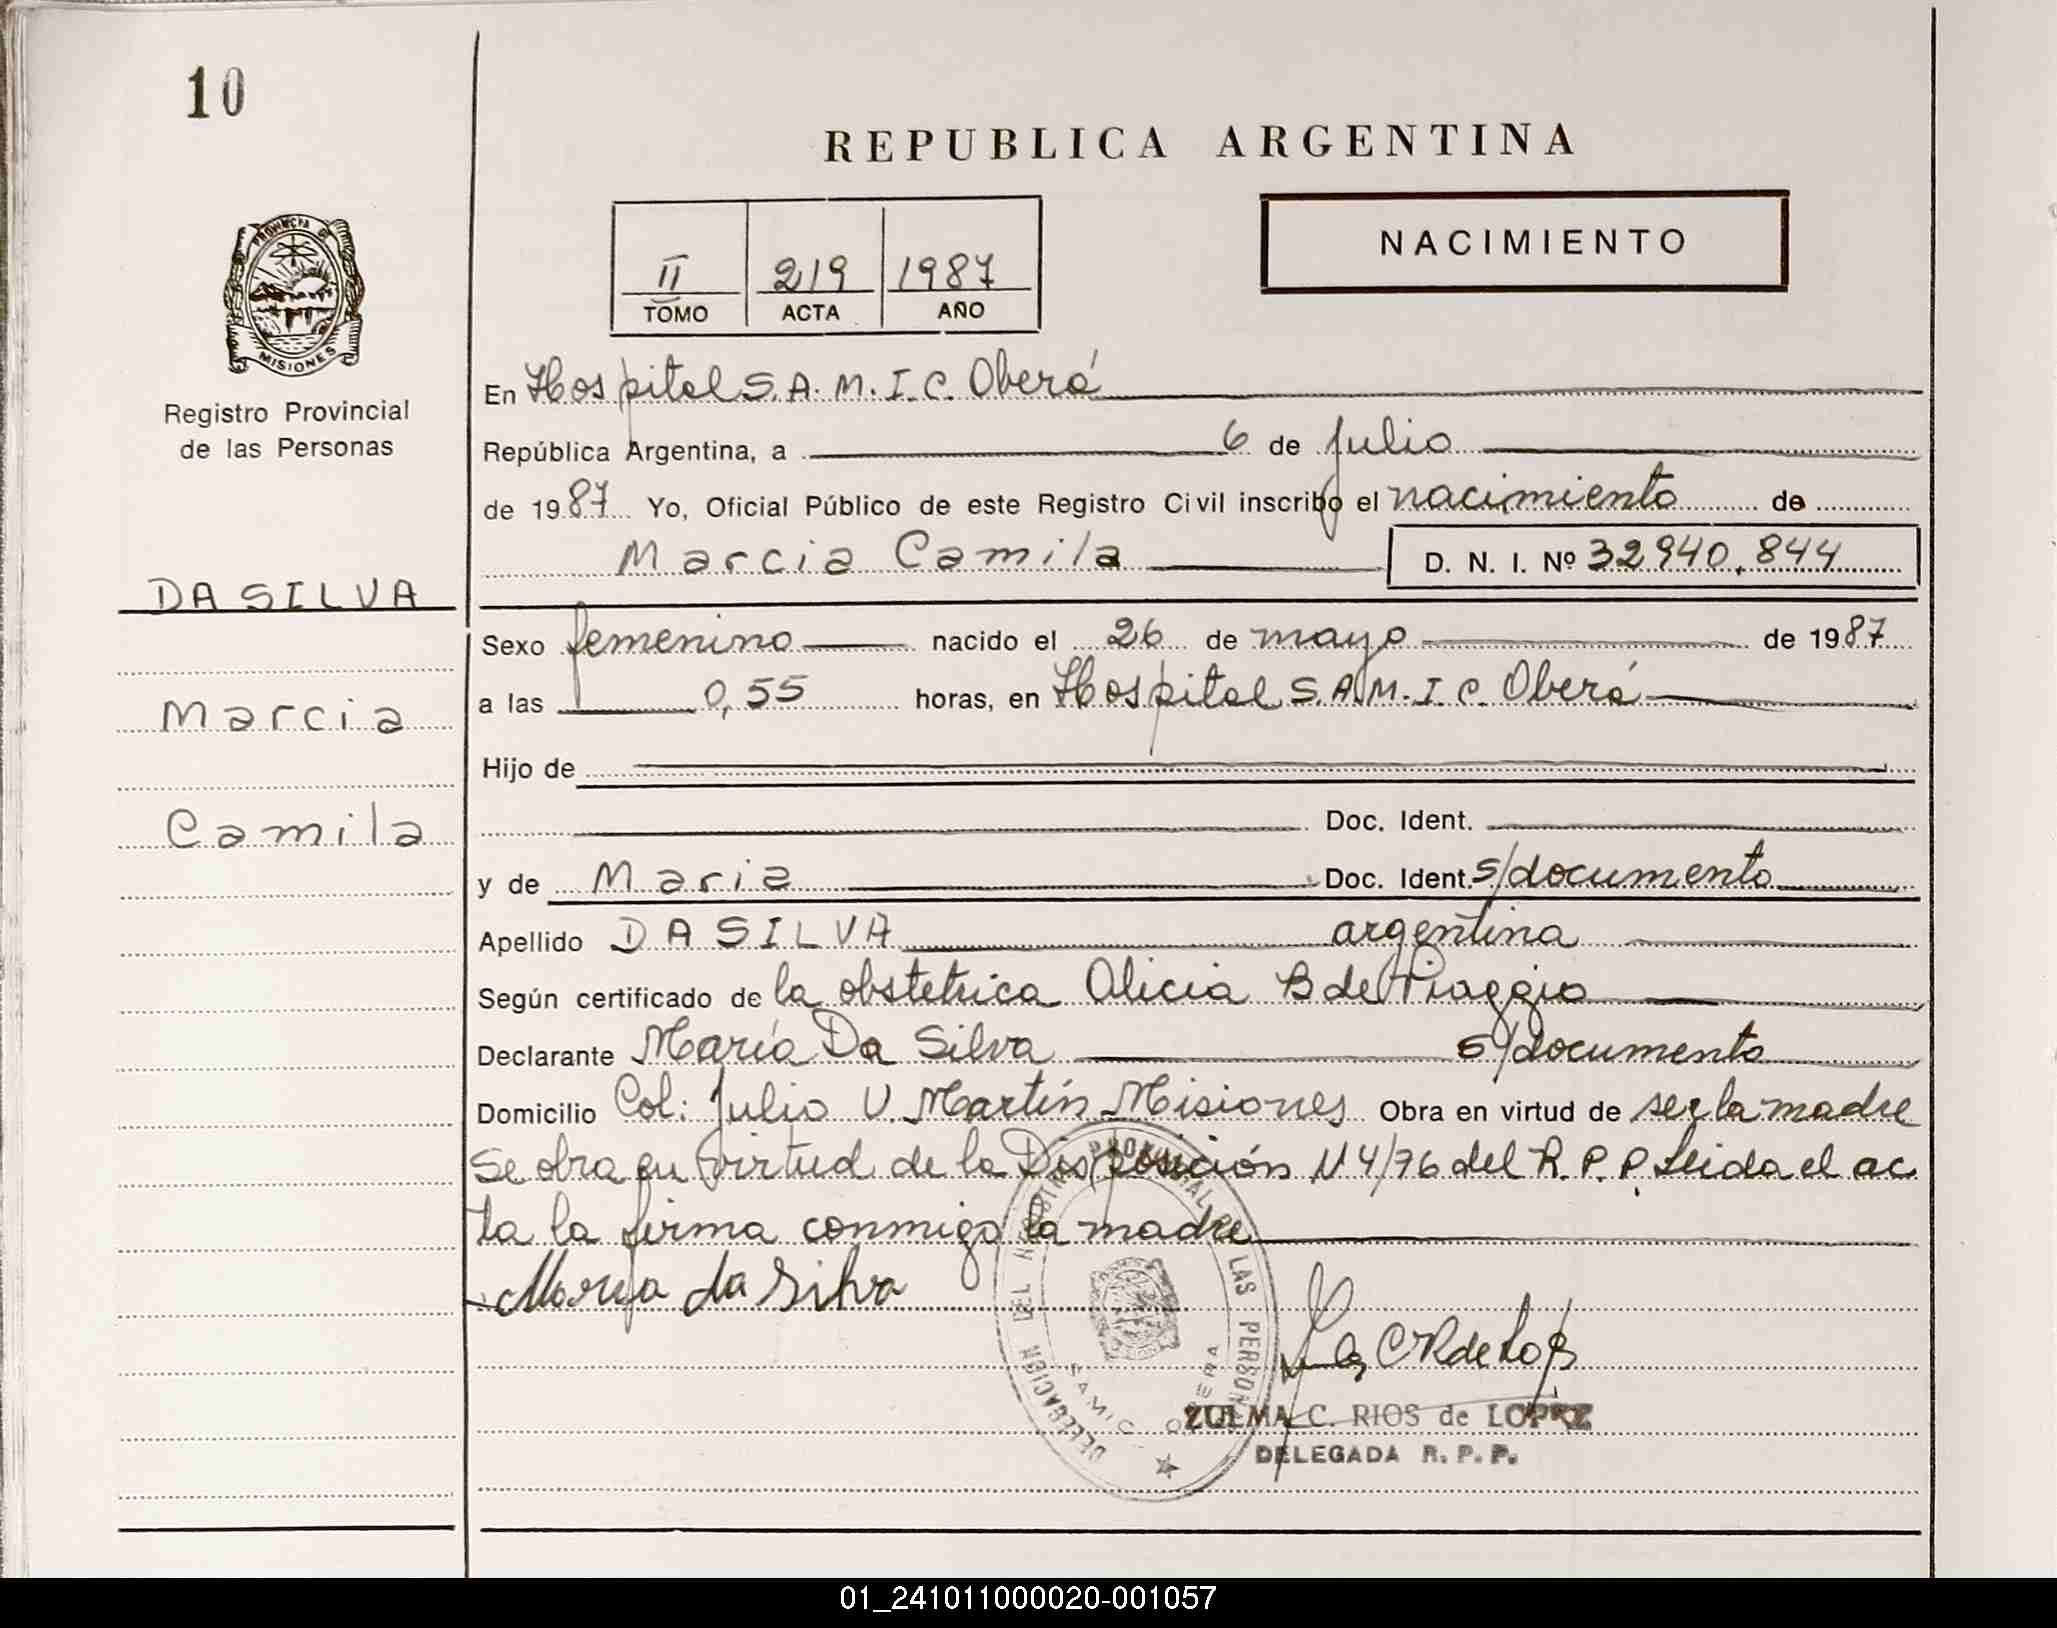 10
REPUBLICA ARGENTINA
NACIMIENTO
II 219 1987
TOMO ACTA AÑO
PROVINCIA DE
MISIONES
Registro Provincial
de las Personas
DA SILVA
Marcia
Camila
En Hospital S.A.M.I.C. Oberá
República Argentina, a 6 de julio
de 1987 Yo, Oficial Público de este Registro Civil inscribo el nacimiento de
Marcia Camila D. N. I. Nº 32940.844
Sexo femenino nacido el 26 de mayo de 1987
a las 0,55 horas, en Hospital S.A.M.I.C. Oberá
Hijo de
Doc. Ident.
y de Maria Doc. Ident. s/documento
Apellido DA SILVA argentina
Según certificado de la obstetrica Alicia B de Piaggio
Declarante María Da Silva s/documento
Domicilio Col: Julio U. Martín Misiones Obra en virtud de ser la madre
Se obra en virtud de la Disposición N 4/76 del R.P.P. Leida el ac
ta la firma conmigo la madre
Maria da Silva
DELEGACION DEL REGISTRO PROVINCIAL DE LAS PERSONAS
SAMIC OBERA
ZULMA C. RIOS de LOPEZ
DELEGADA R. P. P.
01_241011000020-001057